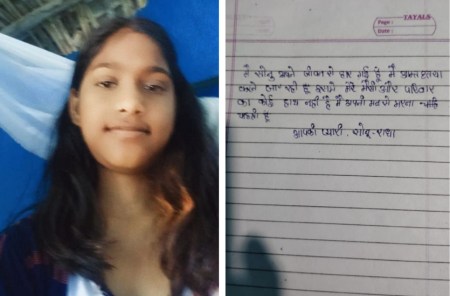 TAYALS
Page :
Date :
मै सोनू अपने जीवन से हार गई है मै आत्महत्या
करने जा रही है इसमे मेरे मम्मी और परिवार
का कोई हाथ नहीं है मै अपनी मर्जी मरना
है
आपकी प्यारी. सोनू-राधा